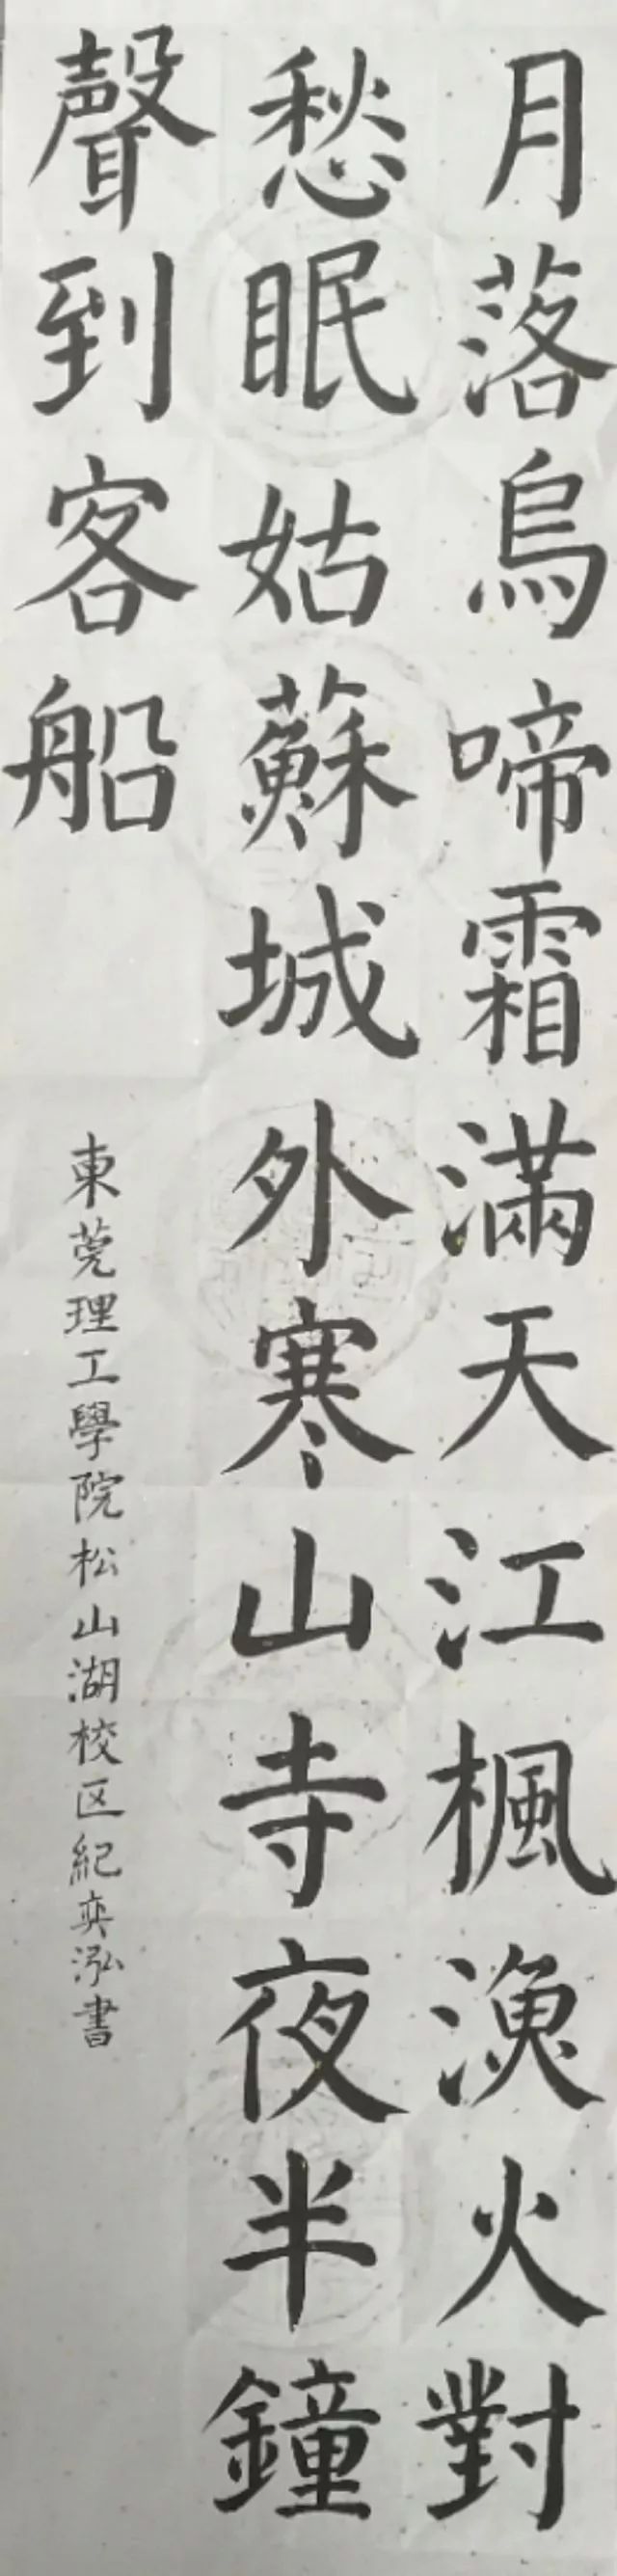 月落烏啼霜滿天江楓漁火對
愁眠姑蘇城外寒山寺夜半鐘
聲到客船
東莞理工學院松山湖校区紀奕泓書